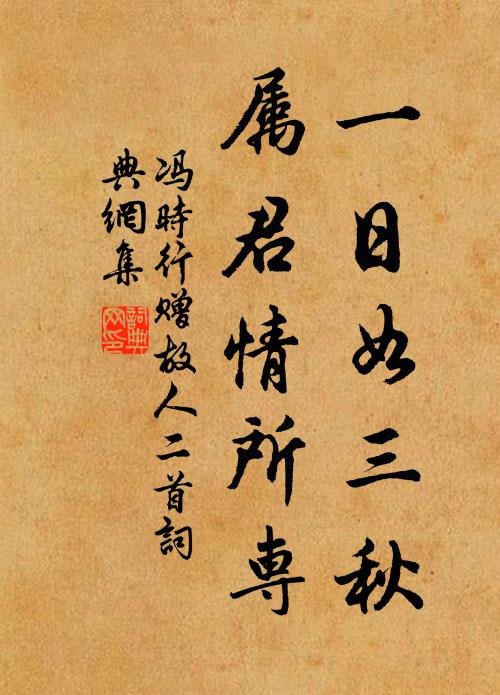 一日如三秋
属君情所専
冯時行赠故人二首詞
典網集
詞典网印